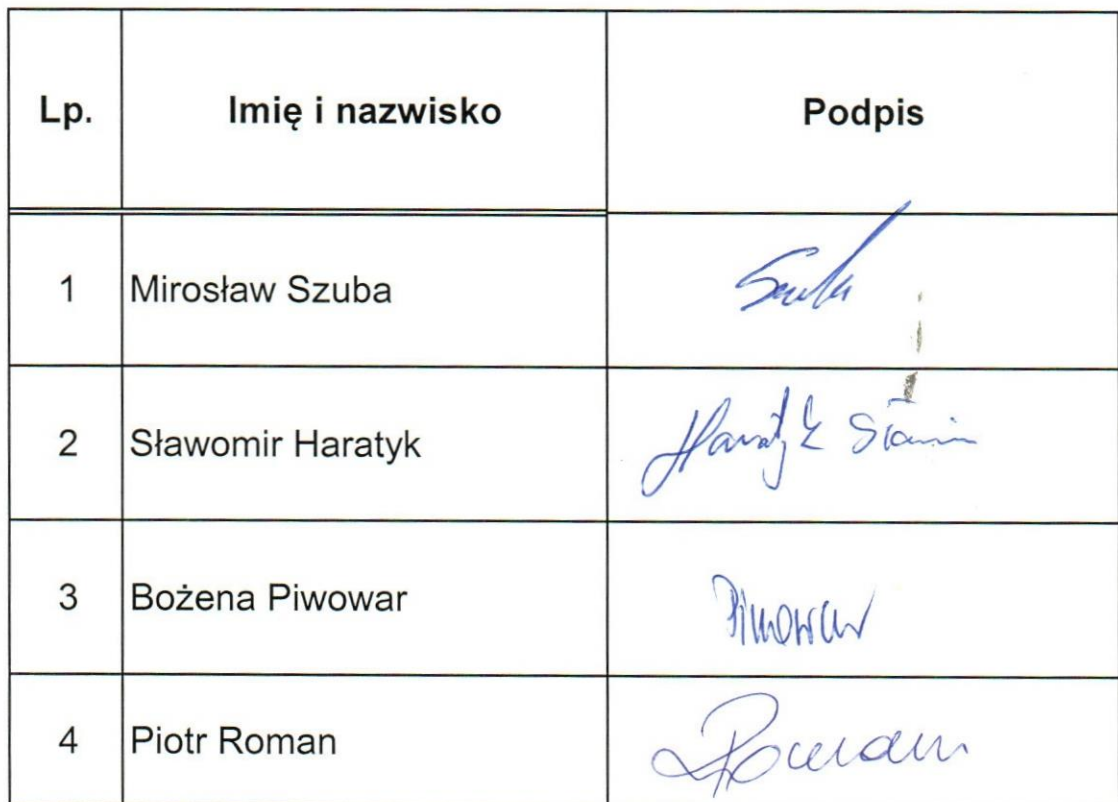 Lp. Imię i nazwisko Podpis
1 Mirosław Szuba Szuba
2 Sławomir Haratyk Haratyk
3 Bożena Piwowar Piwowar
4 Piotr Roman PRoman